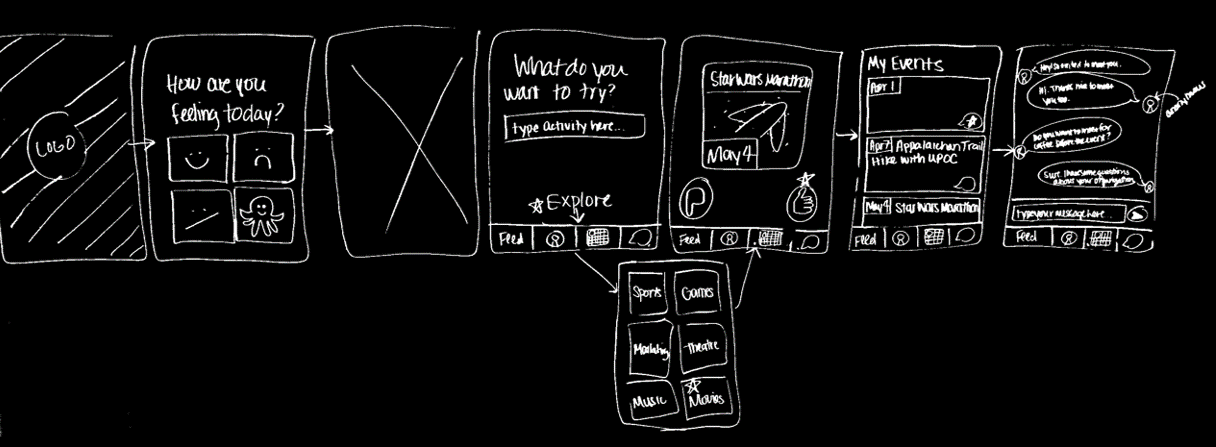 LOGO
How are you
feeling today?
What do you
want to try?
type activity here...
Explore
Feed
Star Wars Marathon
May 4
Feed
My Events
Apr 1
Apr 7
Appalaichan Trail
Hike with UPOC
May 4
Star Wars Marathon
Feed
Hi. Thanks nice to meet
you too.
Do you want to meet for
coffee before the event?
Sure. I have some questions
about your organization.
Type your message here...
Feed
Sports
Games
Theatre
Music
Movies